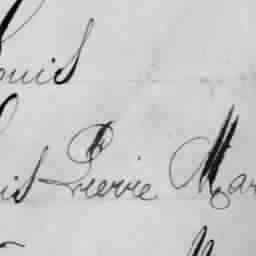 ouis
is Pierre Mar